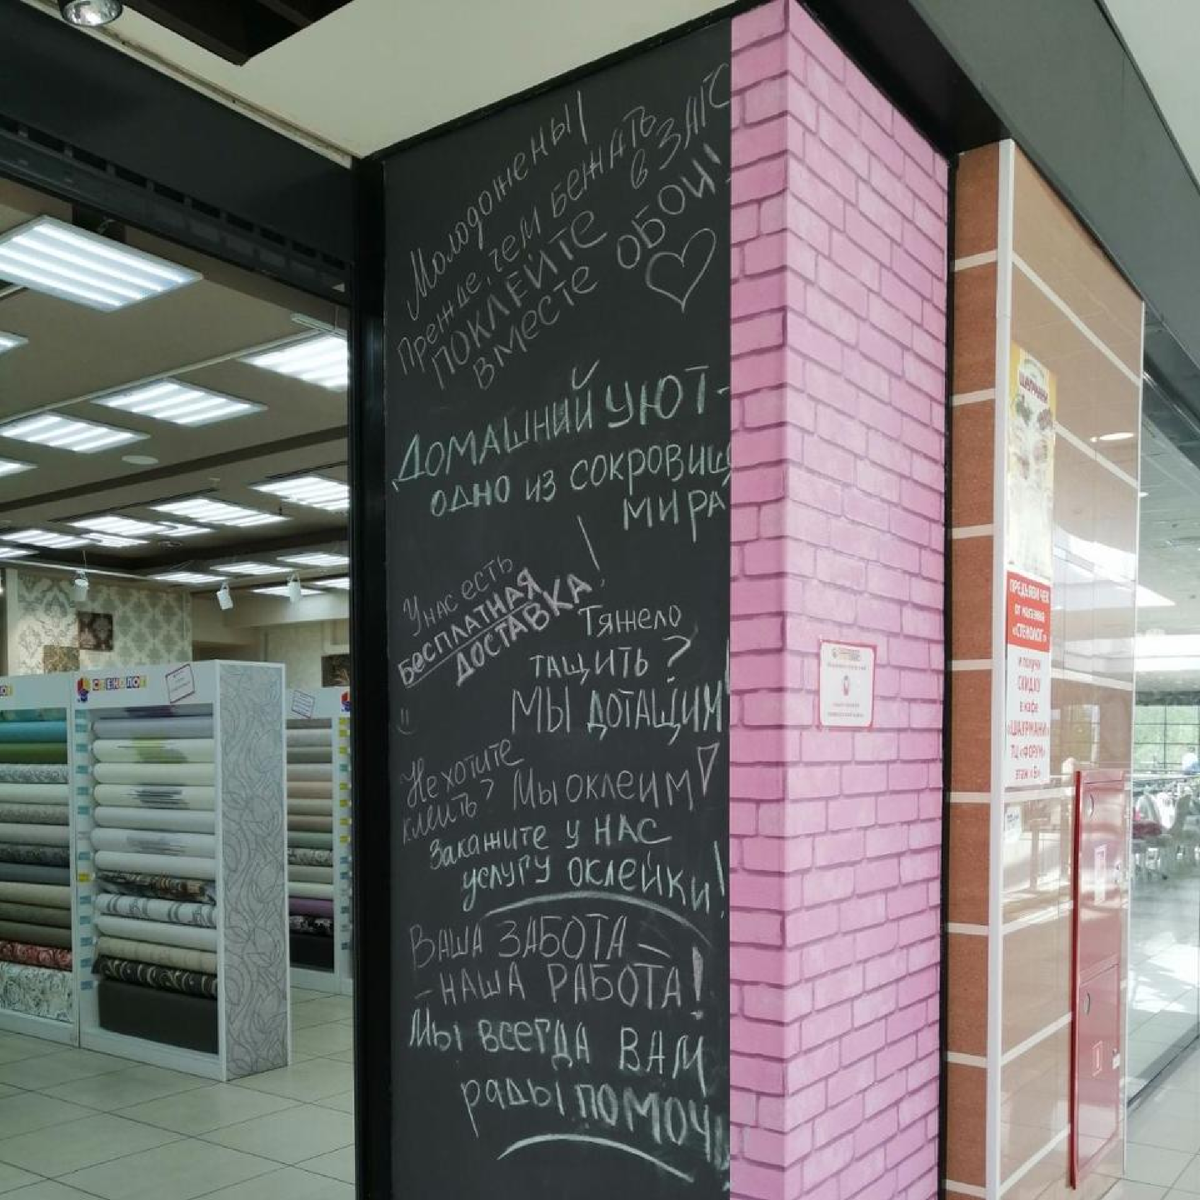 Молодожены!
Прежде, чем бежать
в ЗАГС
ПОКЛЕЙТЕ
вместе ОБОИ!
Домашний уют -
одно из сокровищ
мира
У нас есть
Бесплатная
доставка!
Тяжело
тащить?
Мы дотащим!
Не хотите
клеить? Мы оклеим!
Закажите у нас
услугу оклейки!
Ваша забота -
- наша работа!
Мы всегда вам
рады помочь
СТЕНОЛОГ
ШАУРМАНИЯ
ПРЕДЪЯВИ ЧЕК
от магазина
«СТЕНОЛОГ»
и получи
СКИДКУ
в кафе
«ШАУРМАНИЯ»
ТЦ «ФОРУМ»
этаж «Б»